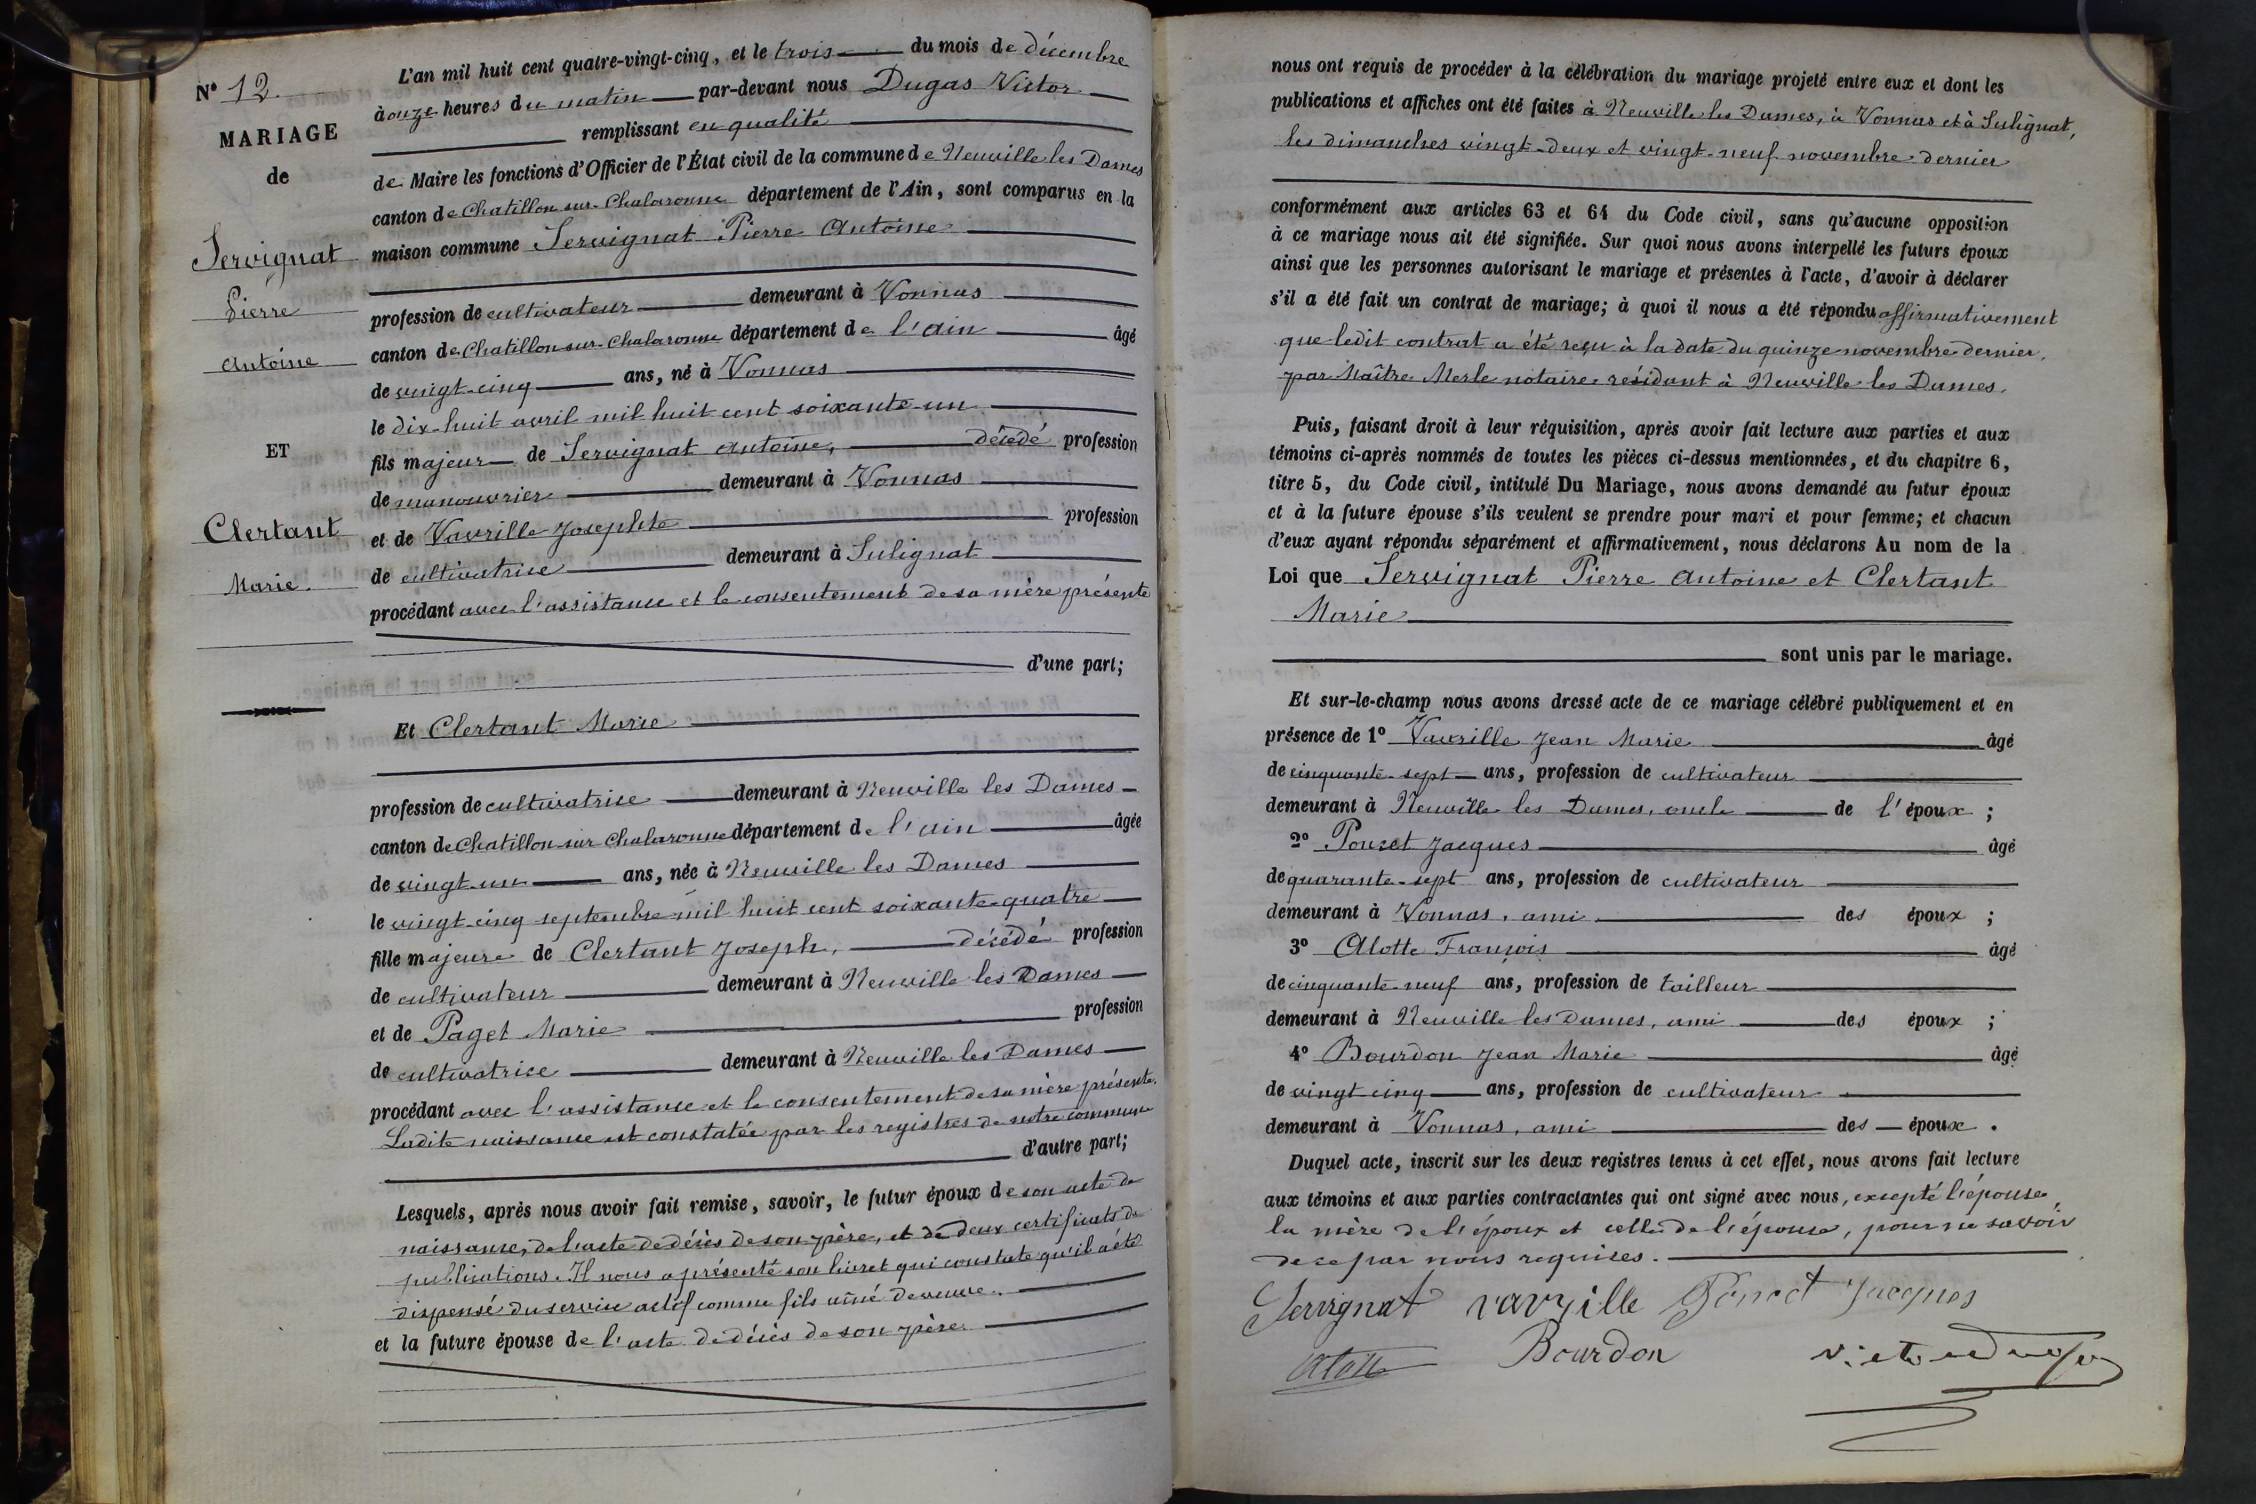 N° 12.
MARIAGE
de
Servignat
Pierre
Antoine
ET
Clertant
Marie.
L'an mil huit cent quatre-vingt-cinq, et le trois du mois de décembre
à onze heures du matin par-devant nous Dugas Victor
remplissant en qualité
de Maire les fonctions d'Officier de l'État civil de la commune de Neuville les Dames
canton de Chatillon-sur-Chalaronne département de l'Ain, sont comparus en la
maison commune Servignat Pierre Antoine
profession de cultivateur demeurant à Vonnas
canton de Chatillon-sur-Chalaronne département de l'ain âgé
de vingt-cinq ans, né à Vonnas
le dix-huit avril mil huit cent soixante-un
fils majeur de Servignat Antoine, décédé profession
de manouvrier demeurant à Vonnas
et de Vavrille Josephte profession
de cultivatrice demeurant à Sulignat
procédant avec l'assistance et le consentement de sa mère présente
d'une part;
Et Clertant Marie
profession de cultivatrice demeurant à Neuville les Dames
canton de Chatillon-sur-Chalaronne département de l'ain âgée
de vingt-un ans, née à Neuville les Dames
le vingt-cinq septembre mil huit cent soixante-quatre
fille majeure de Clertant Joseph, décédé profession
de cultivateur demeurant à Neuville les Dames
et de Paget Marie profession
de cultivatrice demeurant à Neuville les Dames
procédant avec l'assistance et le consentement de sa mère présente.
Ladite naissance est constatée par les registres de notre commune
d'autre part;
Lesquels, après nous avoir fait remise, savoir, le futur époux de son acte de
naissance, de l'acte de décès de son père, et de deux certificats de
publications. Il nous a présenté son livret qui constate qu'il a été
dispensé du service actif comme fils aîné de veuve.
et la future épouse de l'acte de décès de son père.
nous ont requis de procéder à la célébration du mariage projeté entre eux et dont les
publications et affiches ont été faites à Neuville les Dames, à Vonnas et à Sulignat,
les dimanches vingt-deux et vingt-neuf novembre dernier
conformément aux articles 63 et 64 du Code civil, sans qu'aucune opposition
à ce mariage nous ait été signifiée. Sur quoi nous avons interpellé les futurs époux
ainsi que les personnes autorisant le mariage et présentes à l'acte, d'avoir à déclarer
s'il a été fait un contrat de mariage; à quoi il nous a été répondu affirmativement
que ledit contrat a été reçu à la date du quinze novembre dernier,
par Maître Merle notaire résidant à Neuville les Dames.
Puis, faisant droit à leur réquisition, après avoir fait lecture aux parties et aux
témoins ci-après nommés de toutes les pièces ci-dessus mentionnées, et du chapitre 6,
titre 5, du Code civil, intitulé Du Mariage, nous avons demandé au futur époux
et à la future épouse s'ils veulent se prendre pour mari et pour femme; et chacun
d'eux ayant répondu séparément et affirmativement, nous déclarons Au nom de la
Loi que Servignat Pierre Antoine et Clertant
Marie
sont unis par le mariage.
Et sur-le-champ nous avons dressé acte de ce mariage célébré publiquement et en
présence de 1° Vavrille Jean Marie âgé
de cinquante-sept ans, profession de cultivateur
demeurant à Neuville les Dames, oncle de l'époux;
2° Poncet Jacques âgé
de quarante-sept ans, profession de cultivateur
demeurant à Vonnas, ami des époux;
3° Alotte François âgé
de cinquante-neuf ans, profession de tailleur
demeurant à Neuville les Dames, ami des époux;
4° Bourdon Jean Marie âgé
de vingt-cinq ans, profession de cultivateur
demeurant à Vonnas, ami des époux.
Duquel acte, inscrit sur les deux registres tenus à cet effet, nous avons fait lecture
aux témoins et aux parties contractantes qui ont signé avec nous, excepté l'épouse,
la mère de l'époux et celle de l'épouse, pour ne savoir
de ce par nous requises.
Servignat vavrille Poncet Jacques
Alotte Bourdon victor dugas